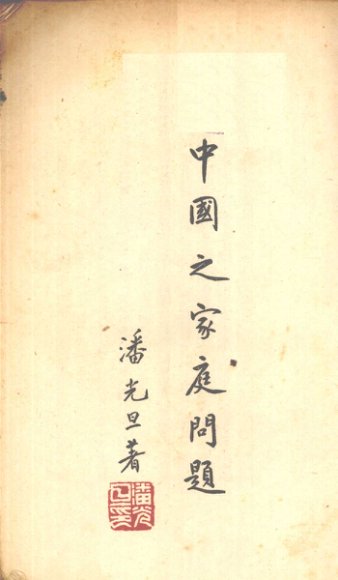 中國之家庭問題
潘光旦著
潘光旦印